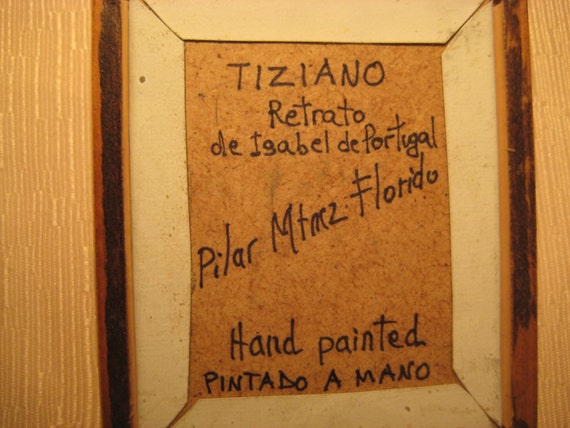 TIZIANO
Retrato
de Isabel de Portugal
Pilar Mtnez Florido
Hand painted
PINTADO A MANO